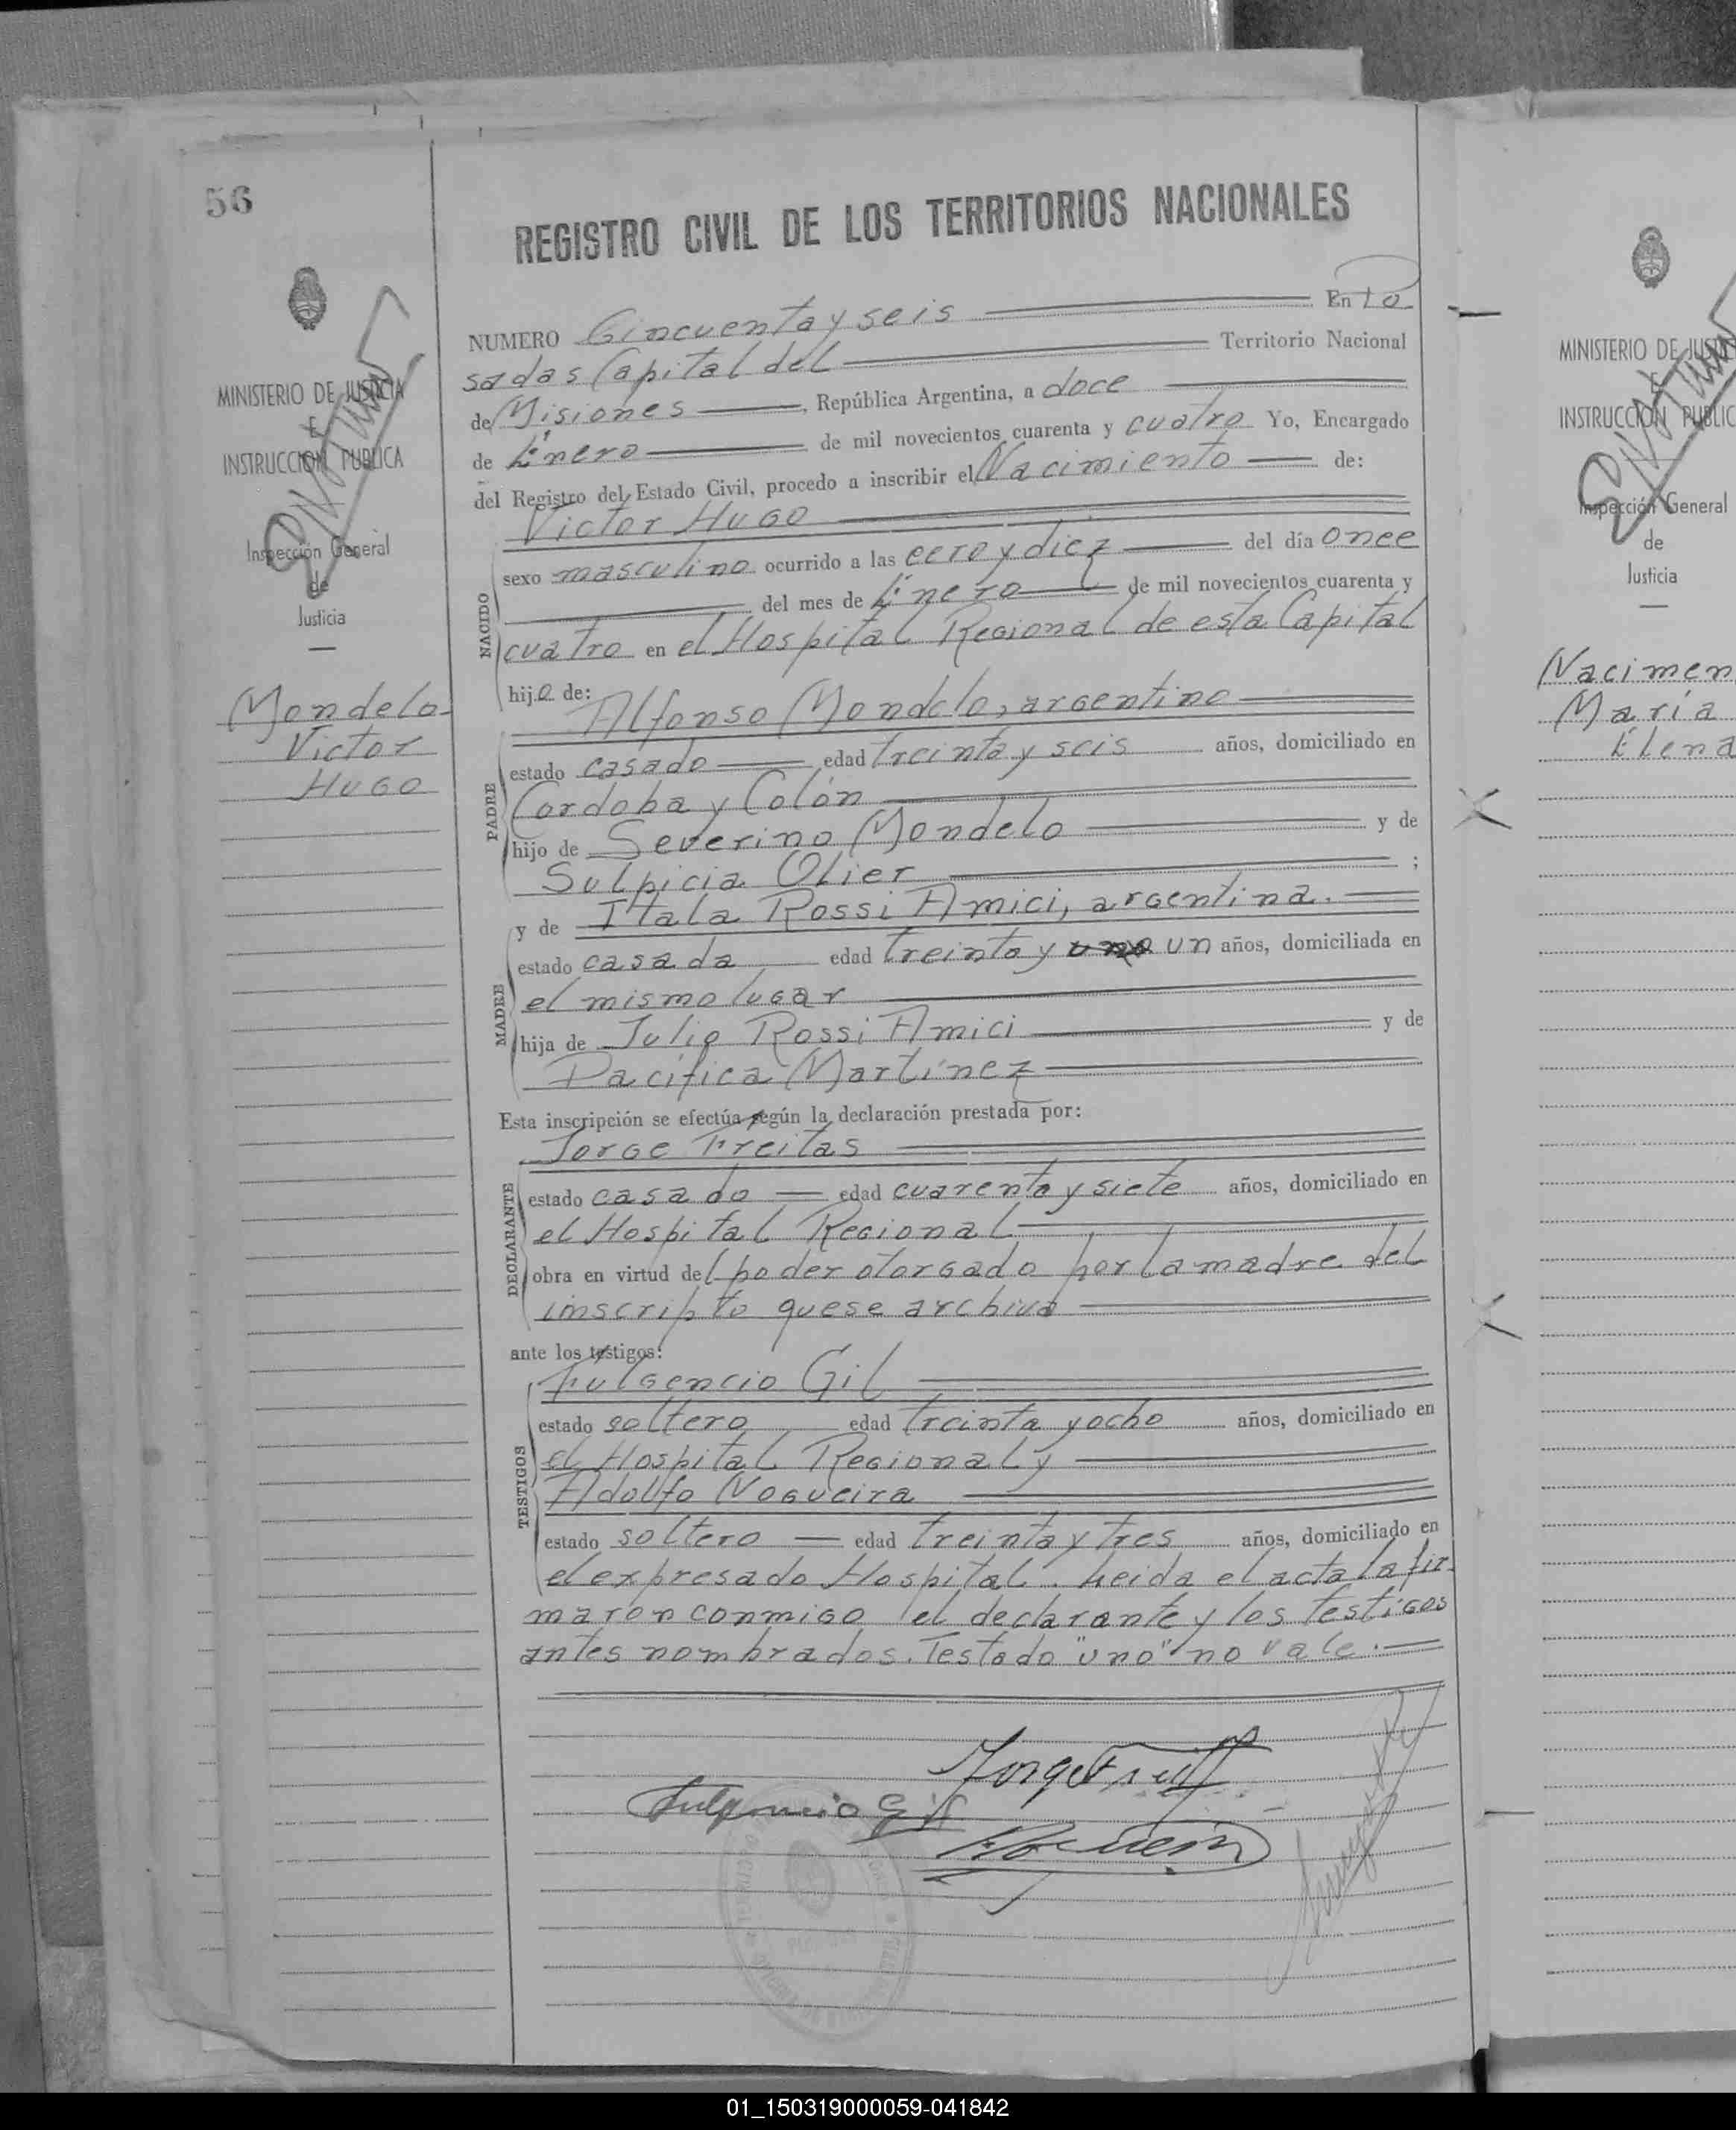 56
REGISTRO CIVIL DE LOS TERRITORIOS NACIONALES
MINISTERIO DE JUSTICIA
E
INSTRUCCION PUBLICA
Inspección General
de
Justicia
Mondelo
Victor
Hugo
NUMERO Cincuenta y seis En Po
sadas Capital del Territorio Nacional
de Misiones, República Argentina, a doce
de Enero de mil novecientos cuarenta y cuatro Yo, Encargado
del Registro del Estado Civil, procedo a inscribir el Nacimiento de:
Victor Hugo
NACIDO
sexo masculino ocurrido a las cero y diez del día once
del mes de Enero de mil novecientos cuarenta y
cuatro en el Hospital Regional de esta Capital
hijo de:
Alfonso Mondelo, argentino
PADRE
estado casado edad treinta y seis años, domiciliado en
Cordoba y Colón
hijo de Severino Mondelo y de
Sulpicia Olier ;
y de Itala Rossi Amici, argentina.
MADRE
estado casada edad treinta y uno un años, domiciliada en
el mismo lugar
hija de Julio Rossi Amici y de
Pacífica Martínez
Esta inscripción se efectúa según la declaración prestada por:
Jorge Freitas
DECLARANTE
estado casado edad cuarenta y siete años, domiciliado en
el Hospital Regional
obra en virtud del poder otorgado por la madre del
inscripto que se archiva
ante los testigos:
Fulgencio Gil
TESTIGOS
estado soltero edad treinta y ocho años, domiciliado en
el Hospital Regional y
Adolfo Nogueira
estado soltero edad treinta y tres años, domiciliado en
el expresado Hospital. Leida el acta la fir-
maron conmigo el declarante y los testigos
antes nombrados. Testado "uno" no vale.
Jorge Freitas
Fulgencio Gil
MINISTERIO DE JUS
E
INSTRUCCION PUBLIC
Inspección General
de
Justicia
Nacimen
María
Elena
01_150319000059-041842